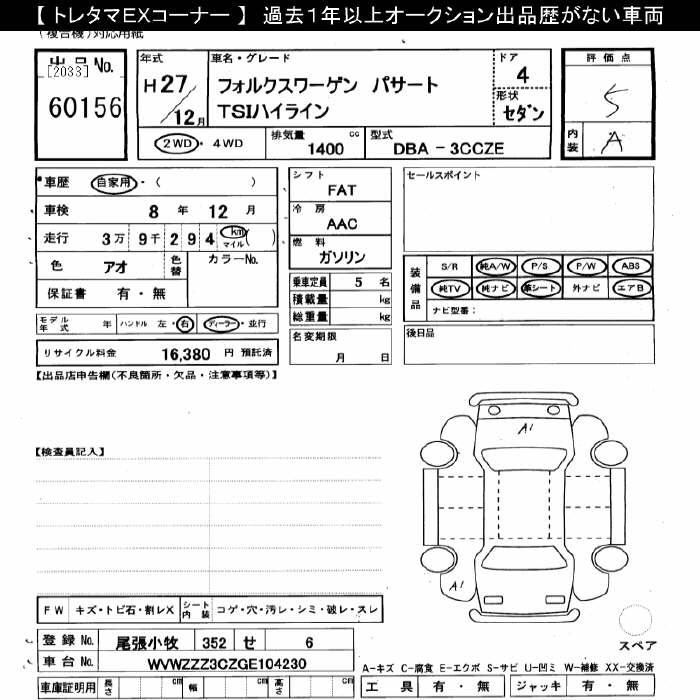 【 トレタマEXコーナー 】 過去1年以上オークション出品歴がない車両
(複合機)対応用紙
出 品 No.
[2033]
60156
年式
H 27/12月
車名・グレード
フォルクスワーゲン パサート
TSIハイライン
ドア
4
形状
セダン
評 価 点
5
内装
A
2WD・4WD
排気量
1400 cc
型式
DBA - 3CCZE
車歴 自家用・( )
車検 8 年 12 月
走行 3万 9千 2 9 4 km マイル ( )
色 アオ 色替 カラーNo.
保証書 有・無
シフト
FAT
冷 房
AAC
燃 料
ガソリン
乗車定員 5 名
積載量 kg
総重量 kg
名変期限
月 日
セールスポイント
装備品
S/R 純A/W P/S P/W ABS
純TV 純ナビ 革シート 外ナビ エアB
ナビ型番:
後日品
モデル年式 年 ハンドル 左・右 ディーラー・並行
リサイクル料金 16,380 円 預託済
【出品店申告欄(不良箇所・欠品・注意事項等)】
【検査員記入】
A1
A1
FW キズ・トビ石・割レX シート内装 コゲ・穴・汚レ・シミ・破レ・スレ
登録 No. 尾張小牧 352 せ 6
車台 No. WVWZZZ3CZGE104230
車庫証明用 長さ cm 幅 cm 高さ cm
スペア
A-キズ C-腐食 E-エクボ S-サビ U-凹ミ W-補修 XX-交換済
工 具 有・無 ジャッキ 有・無